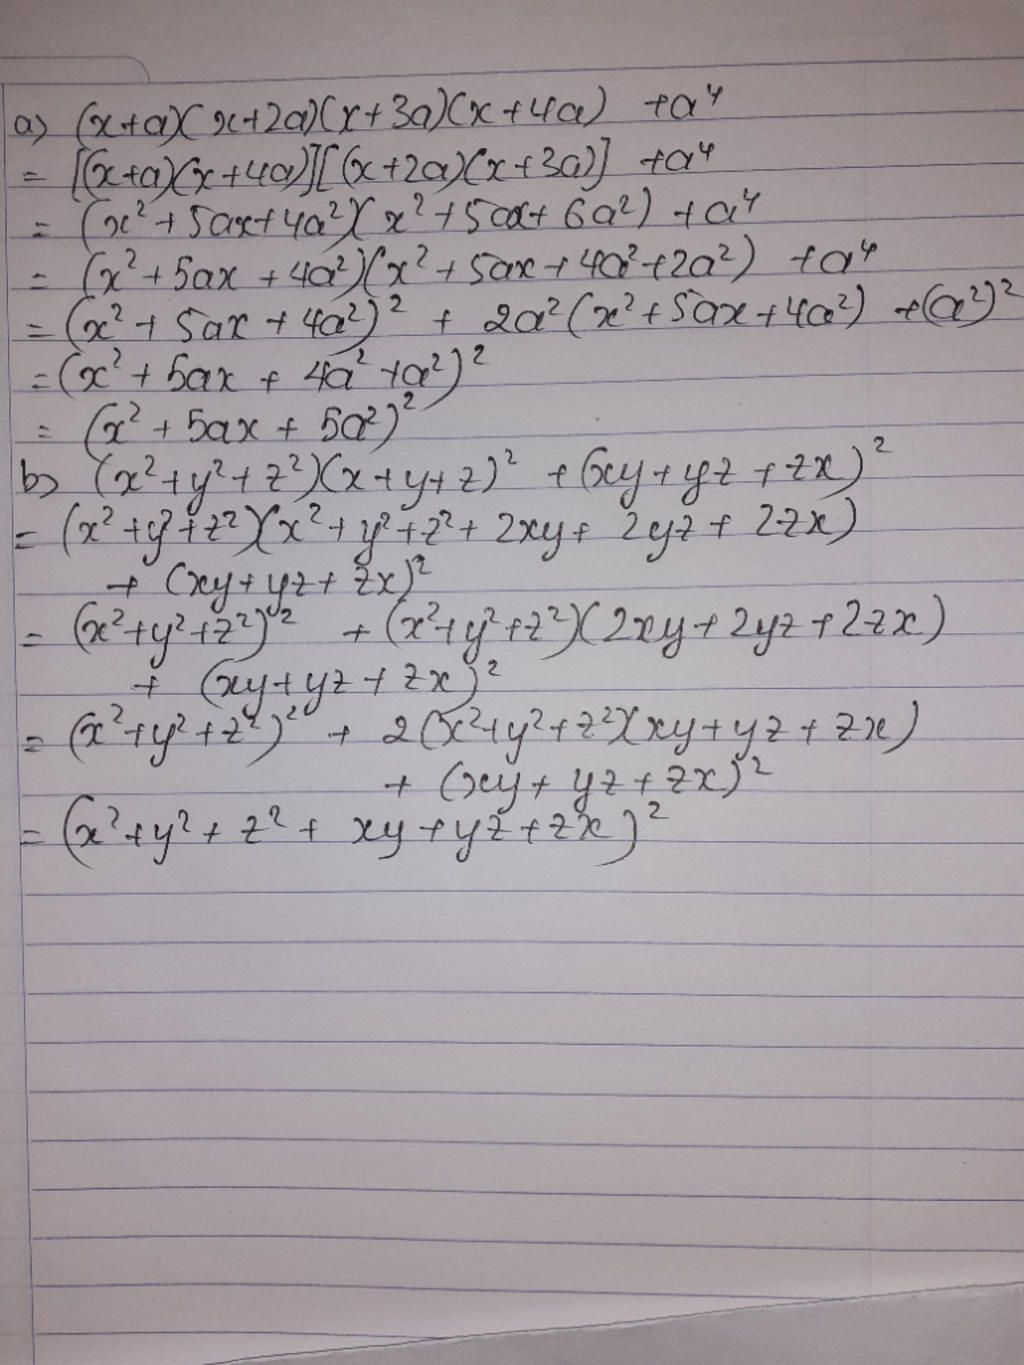 a) (x+a)(x+2a)(x+3a)(x+4a) +a⁴
= [(x+a)(x+4a)][(x+2a)(x+3a)] +a⁴
= (x²+5ax+4a²)(x²+5ax+6a²) +a⁴
= (x²+5ax+4a²)(x²+5ax+4a²+2a²) +a⁴
= (x²+5ax+4a²)² + 2a²(x²+5ax+4a²) +(a²)²
= (x²+5ax+4a²+a²)²
= (x²+5ax+5a²)²
b) (x²+y²+z²)(x+y+z)² +(xy+yz+zx)²
= (x²+y²+z²)(x²+y²+z²+2xy+2yz+2zx)
+ (xy+yz+zx)²
= (x²+y²+z²)² +(x²+y²+z²)(2xy+2yz+2zx)
+ (xy+yz+zx)²
= (x²+y²+z²)² + 2(x²+y²+z²)(xy+yz+zx)
+ (xy+yz+zx)²
= (x²+y²+z²+xy+yz+zx)²